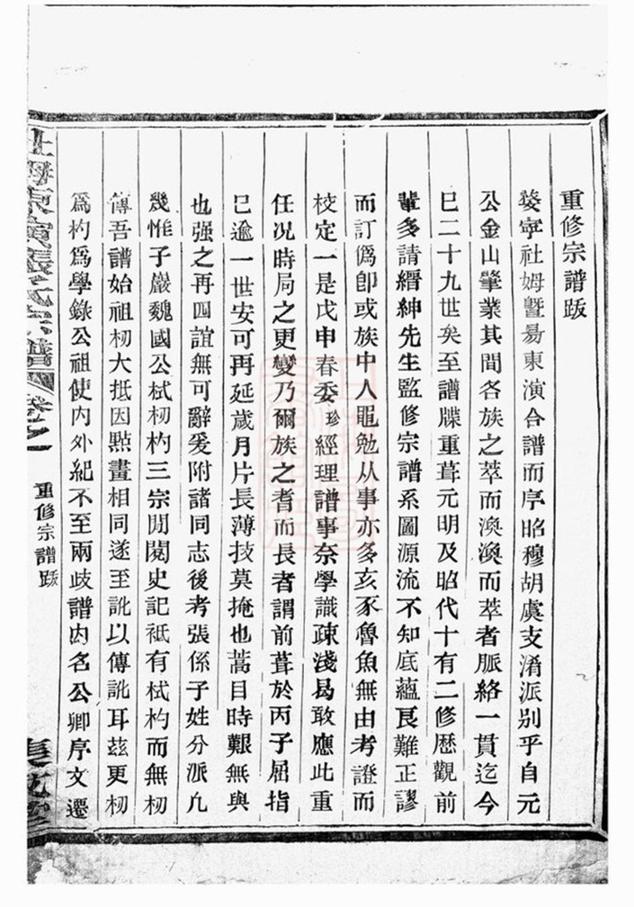 重修宗譜跋
婺寧社姆暨昜東演合譜而序昭穆胡虞支淆派别乎自元
公金山肇業其間各族之萃而渙渙而萃者脈絡一貫迄今
巳二十九世矣至譜牒重葺元明及昭代十有二修歷觀前
輩多請縉紳先生監修宗譜系圖源流不知底蘊良難正謬
而訂僞卽或族中人黽勉从事亦多亥豕魯魚無由考證而
校定一是戊申春委珍經理譜事奈學識疎淺曷敢應此重
任况時局之更變乃爾族之耆而長者謂前葺於丙子屈指
巳逾一世安可再延歲月片長薄技莫掩也蒿目時艱無與
也强之再四誼無可辭爰附諸同志後考張係子姓分派凢
幾惟子嚴魏國公栻杒杓三宗閒閱史記祗有栻杓而無杒
傳吾譜始祖杒大抵因㸃畫相同遂至訛以傳訛耳茲更杒
爲杓爲學錄公祖使内外紀不至兩歧譜内名公卿序文遷
東演張氏宗譜
卷之一
重修宗譜跋